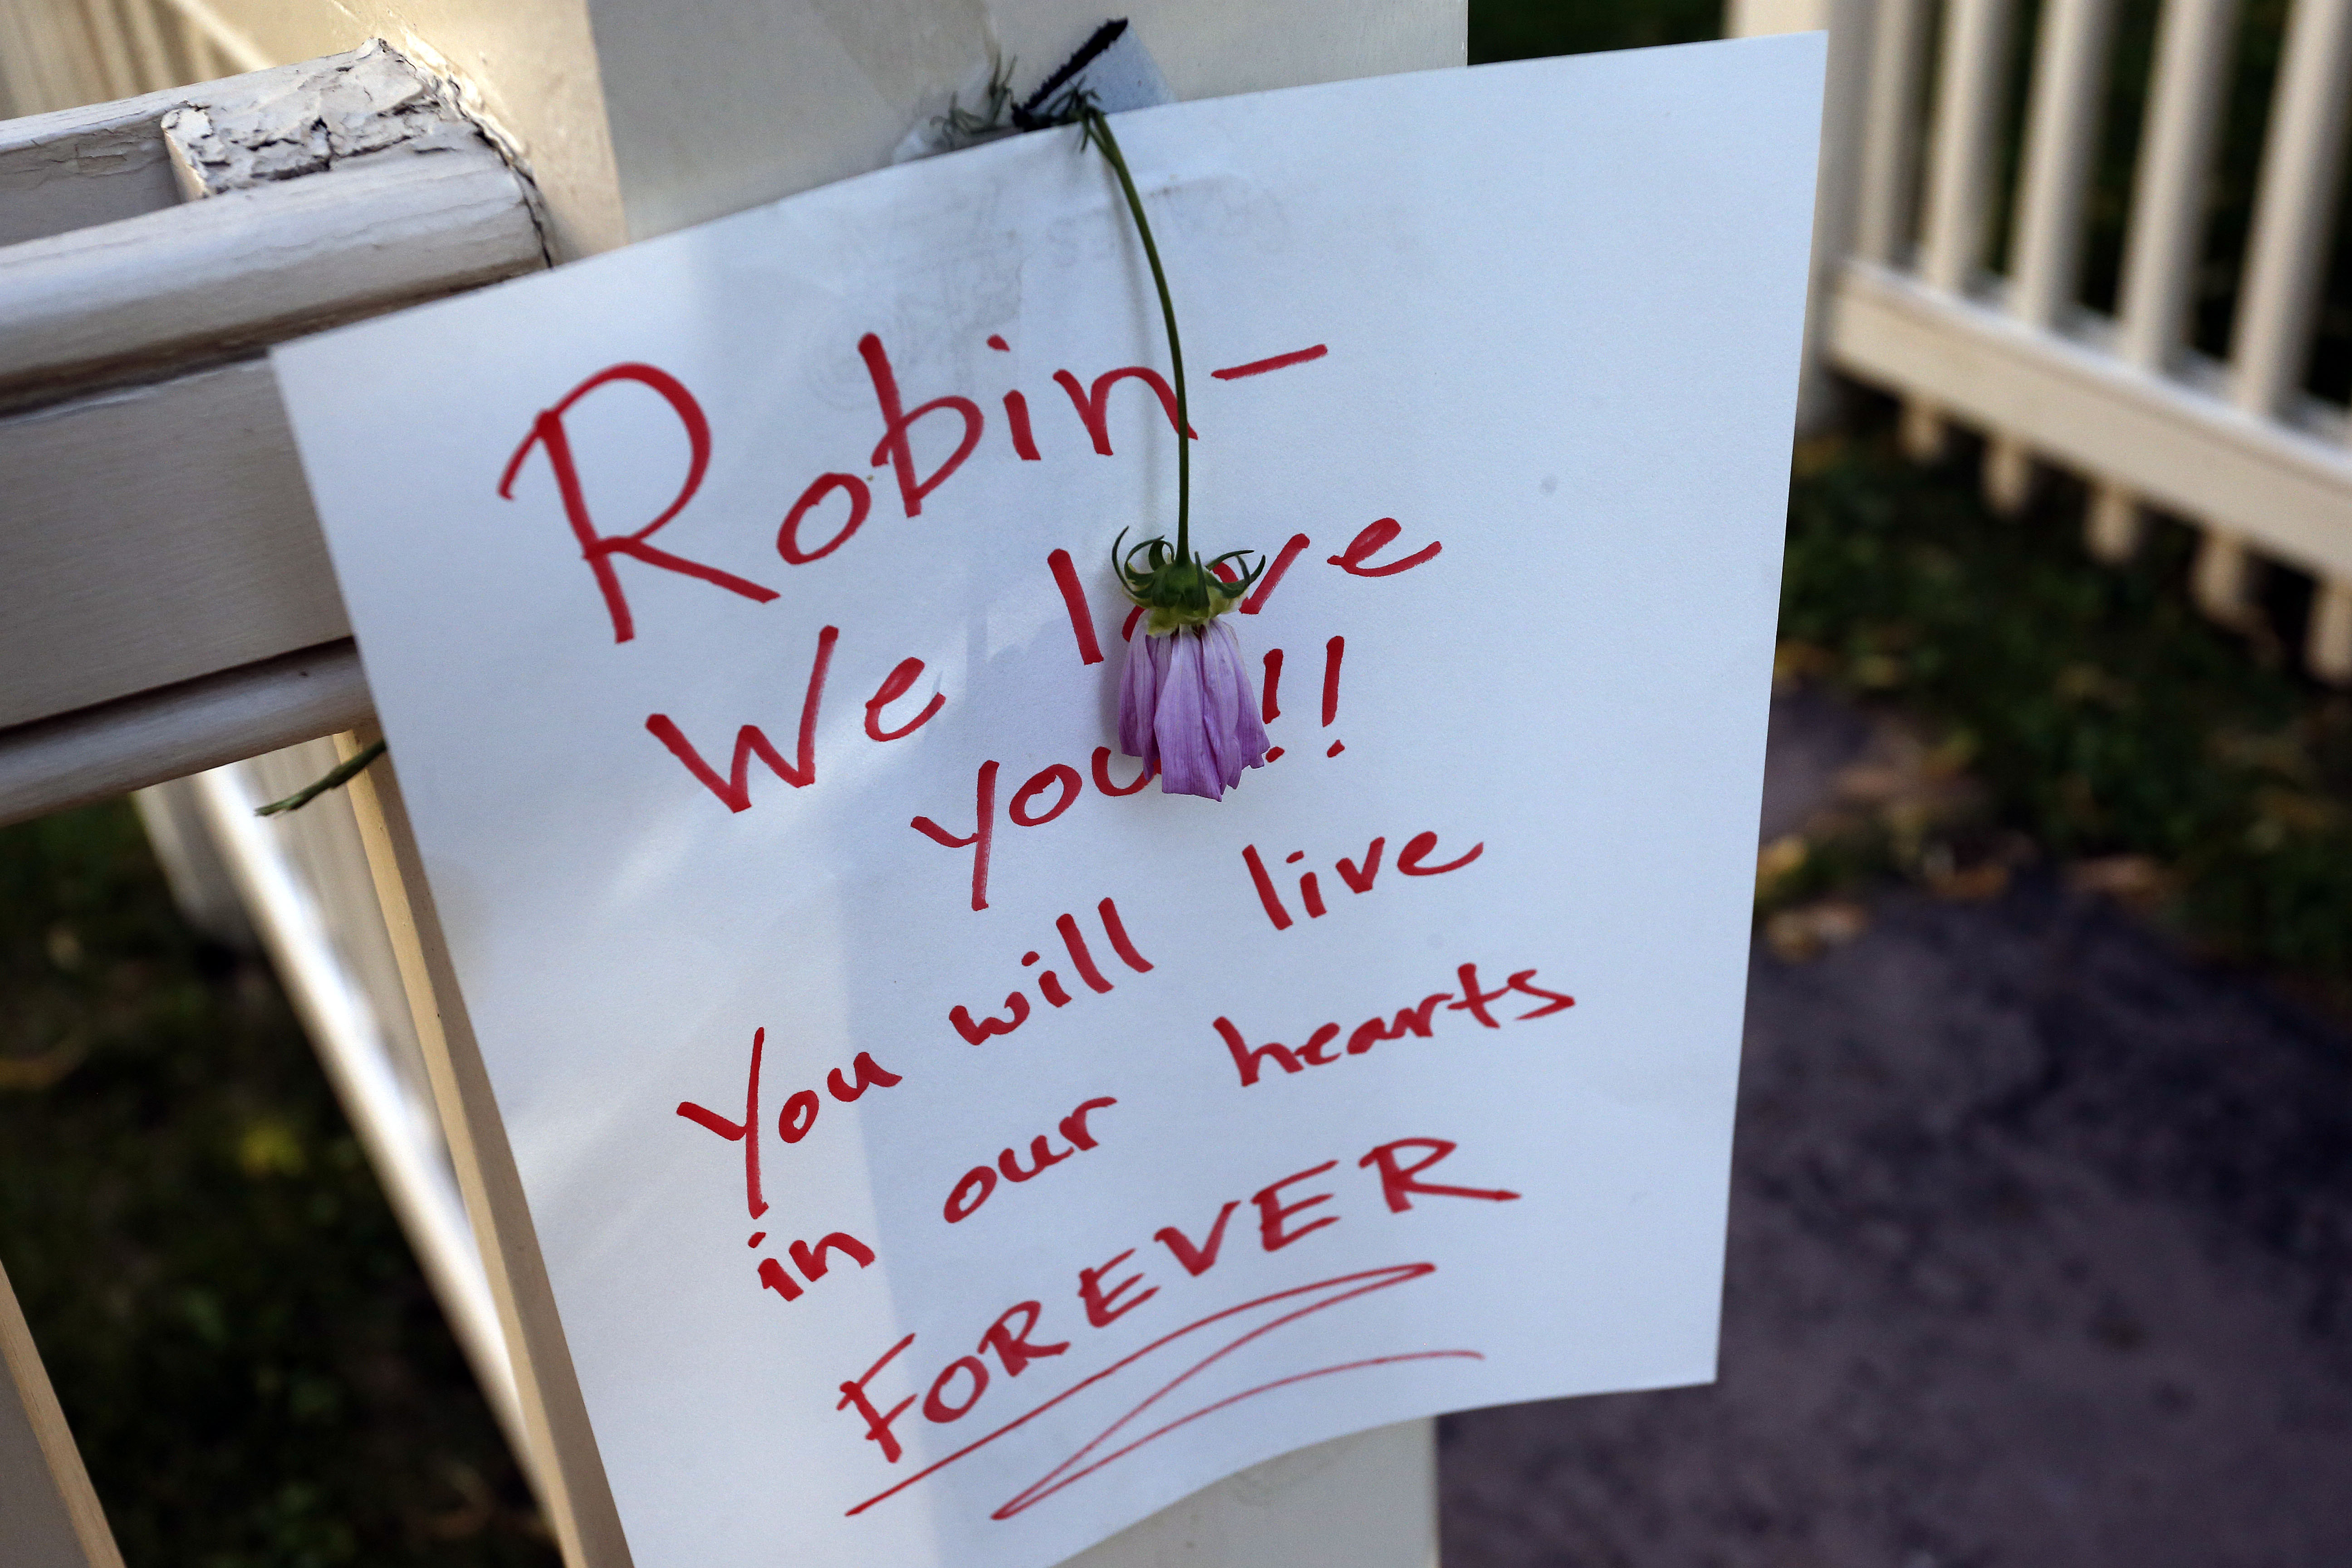 Robin-
We love
you!!
You will live
in our hearts
FOREVER